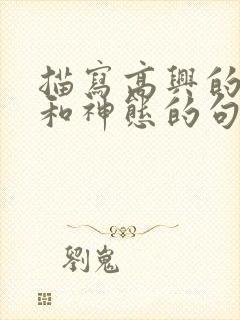 描寫高興的
和神態的句
劉嵬